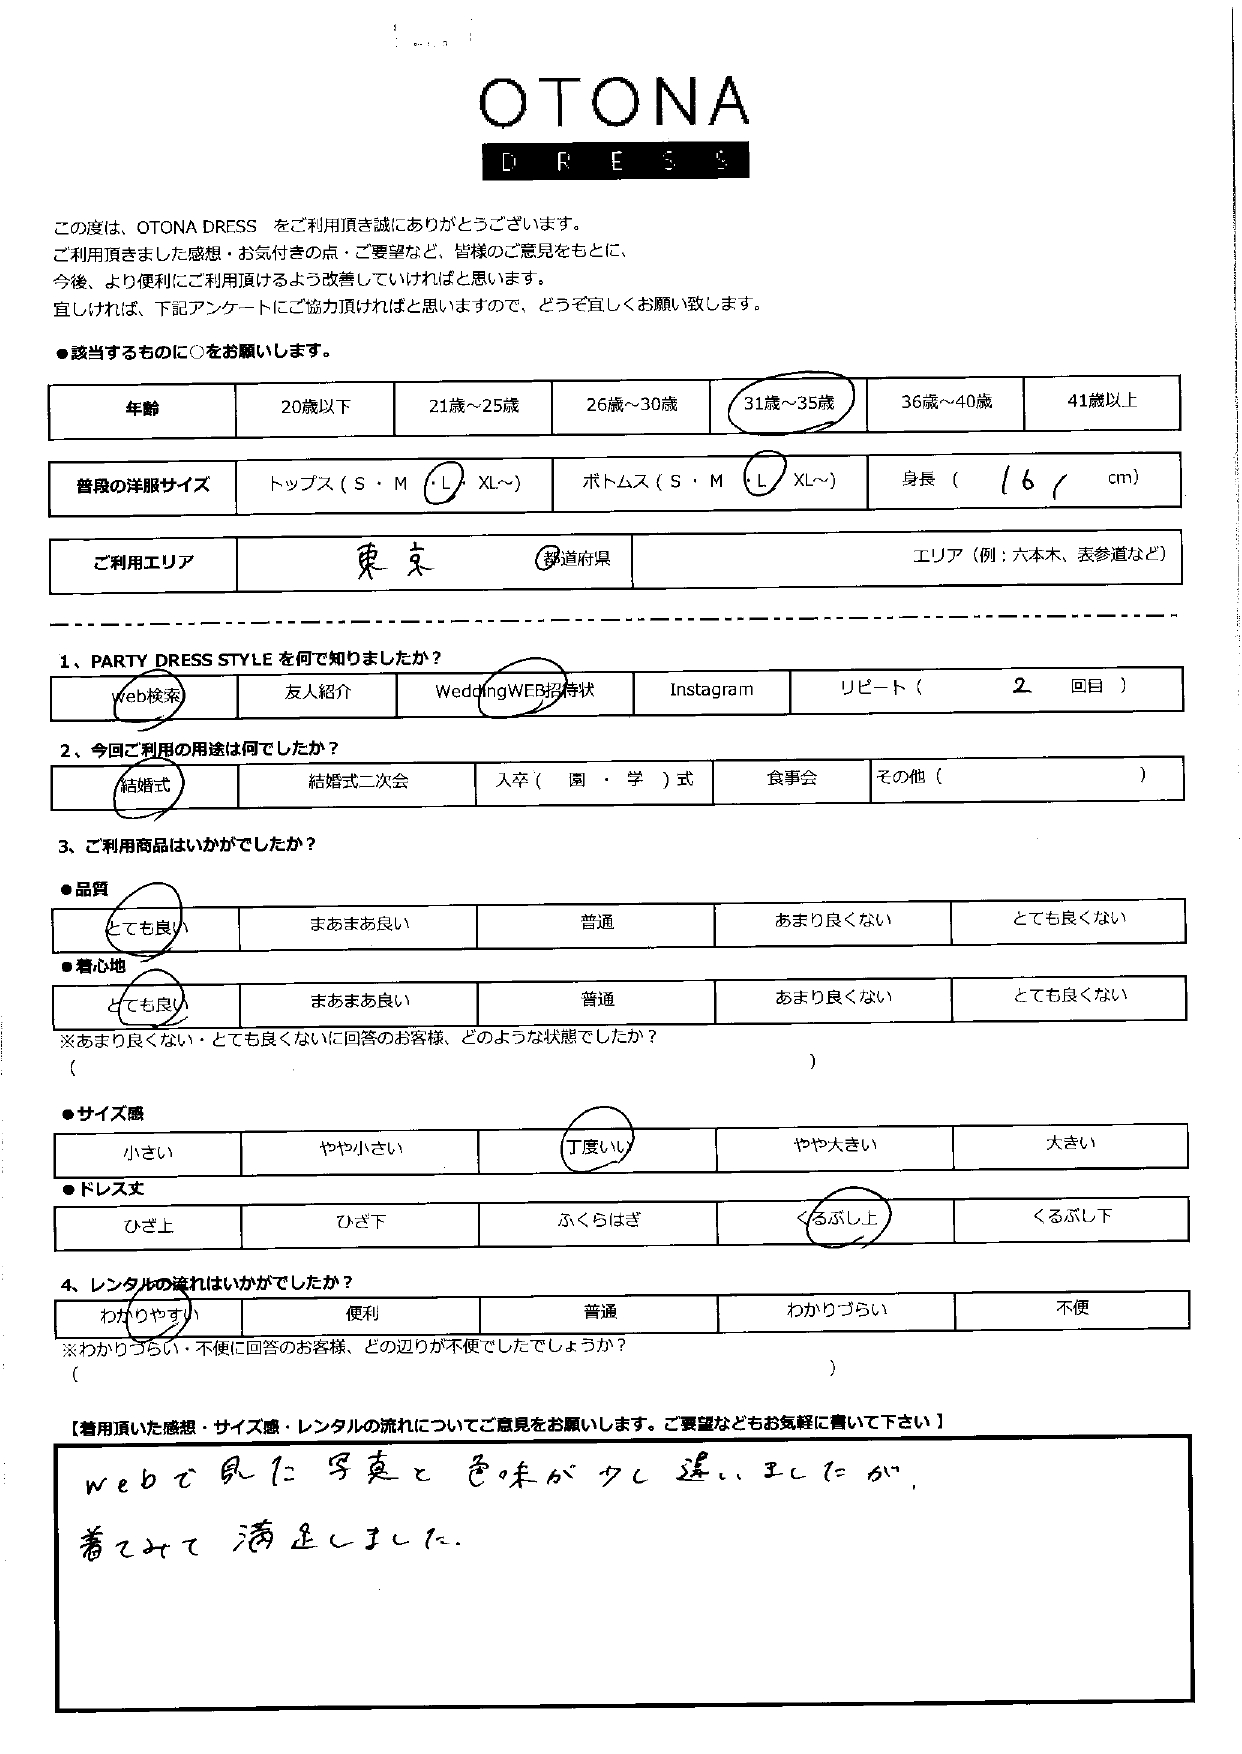 OTONA
DRESS
この度は、OTONA DRESS　をご利用頂き誠にありがとうございます。
ご利用頂きました感想・お気付きの点・ご要望など、皆様のご意見をもとに、
今後、より便利にご利用頂けるよう改善していければと思います。
宜しければ、下記アンケートにご協力頂ければと思いますので、どうぞ宜しくお願い致します。
●該当するものに○をお願いします。
年齢 20歳以下 21歳～25歳 26歳～30歳 31歳～35歳 36歳～40歳 41歳以上
普段の洋服サイズ トップス（ S ・ M ・L・ XL～） ボトムス（ S ・ M ・L XL～） 身長（ 161 cm）
ご利用エリア 東京 都道府県 エリア（例：六本木、表参道など）
1、PARTY DRESS STYLE を何で知りましたか？
web検索 友人紹介 WeddingWEB招待状 Instagram リピート（ 2 回目 ）
2、今回ご利用の用途は何でしたか？
結婚式 結婚式二次会 入卒（ 園 ・ 学 ）式 食事会 その他（ ）
3、ご利用商品はいかがでしたか？
●品質
とても良い まあまあ良い 普通 あまり良くない とても良くない
●着心地
とても良い まあまあ良い 普通 あまり良くない とても良くない
※あまり良くない・とても良くないに回答のお客様、どのような状態でしたか？
（ ）
●サイズ感
小さい やや小さい 丁度いい やや大きい 大きい
●ドレス丈
ひざ上 ひざ下 ふくらはぎ くるぶし上 くるぶし下
4、レンタルの流れはいかがでしたか？
わかりやすい 便利 普通 わかりづらい 不便
※わかりづらい・不便に回答のお客様、どの辺りが不便でしたでしょうか？
（ ）
【着用頂いた感想・サイズ感・レンタルの流れについてご意見をお願いします。ご要望などもお気軽に書いて下さい 】
webで見た写真と色味が少し違いましたが、
着てみて満足しました.